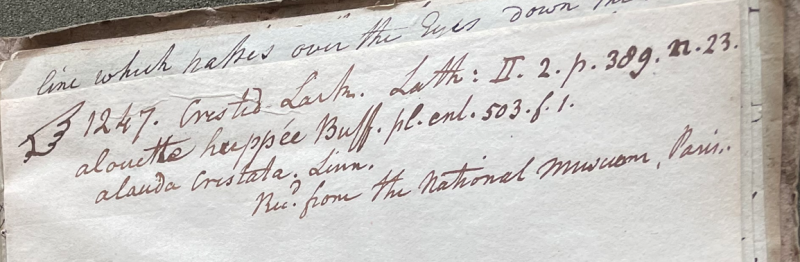 line which passes over the Eyes down the
1247. Crested Lark. Lath: II. 2. p. 389. n. 23.
alouette huppée Buff. pl. enl. 503. f. 1.
alauda Cristata. Linn.
Rec.d from the National Museum, Paris.